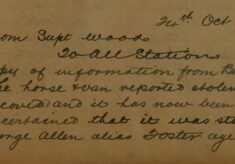 24th Oct
om Supt Woods
To All Stations
py of information from the
he horse & van reported stolen
covered and it has now been
certained that it was sto
orge Allen alias Foster age